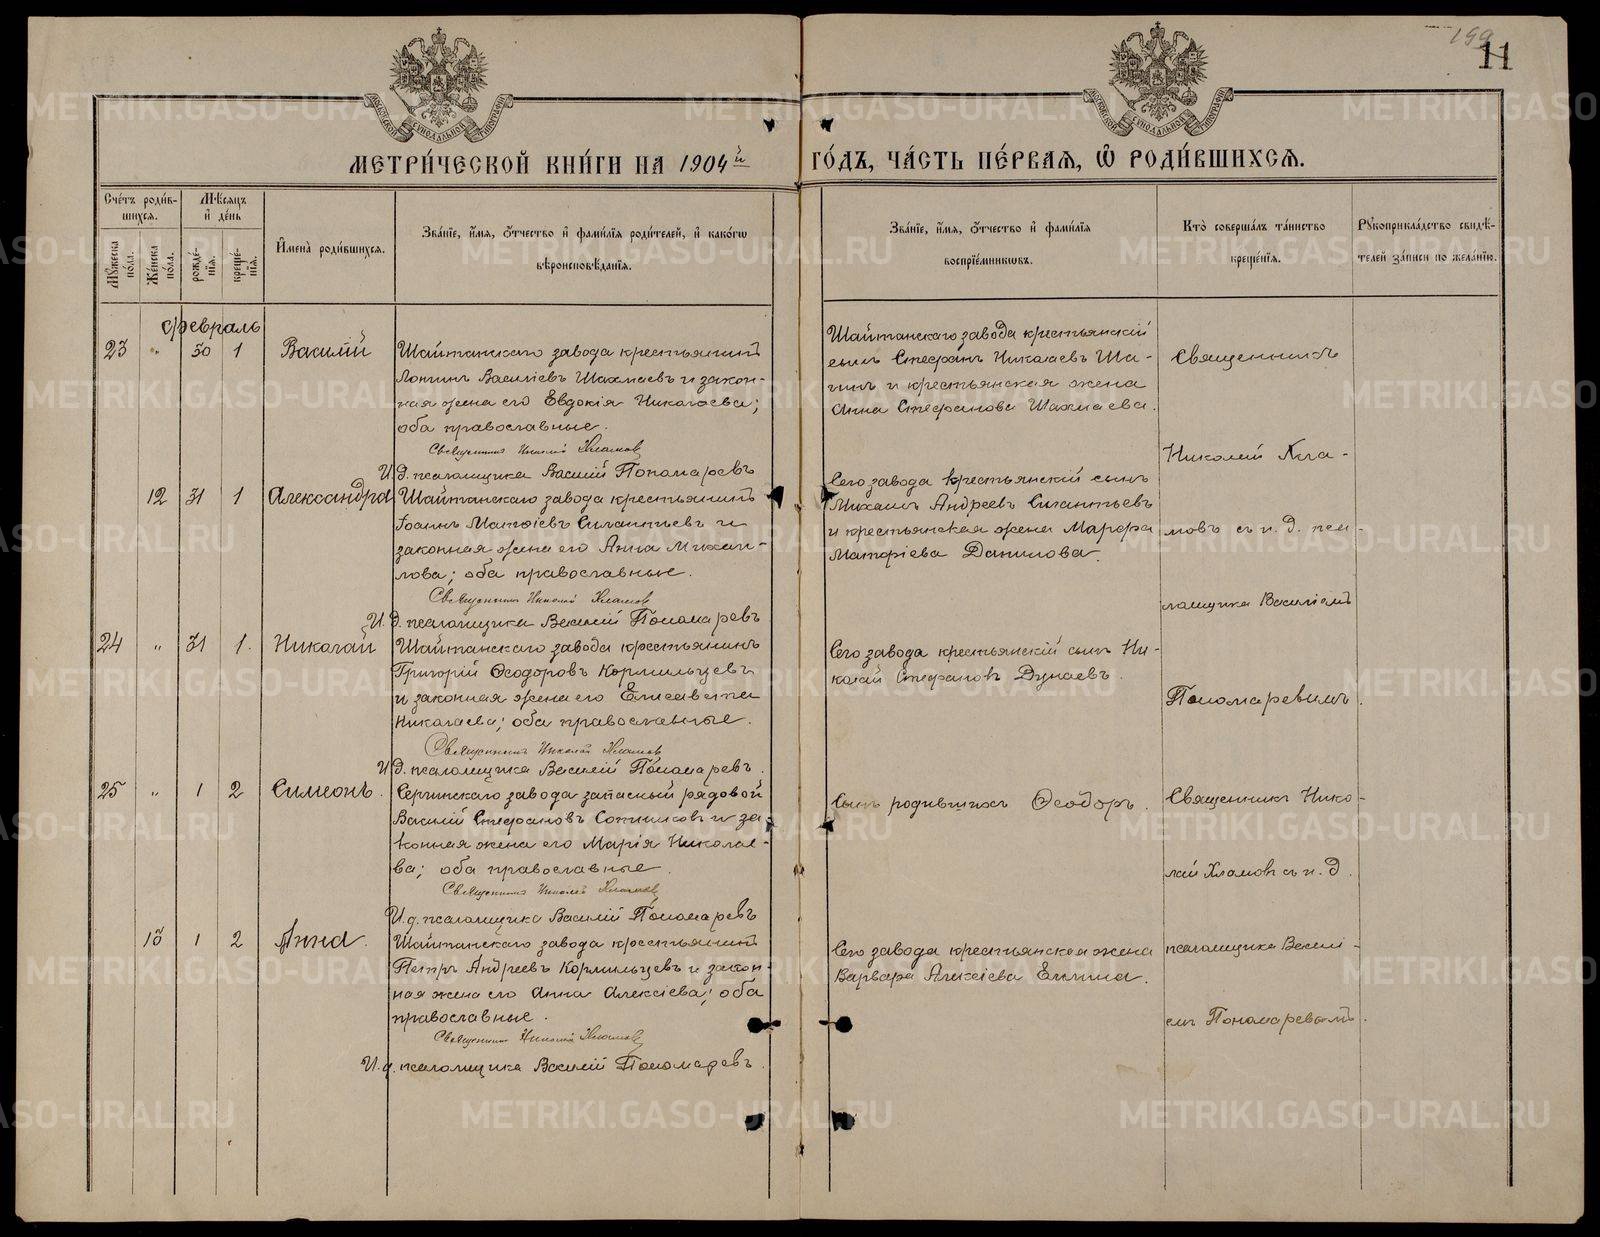 159
11
МОСКОВСКОЙ СѴНОДАЛЬНОЙ ТИПОГРАФІИ
МОСКОВСКОЙ СѴНОДАЛЬНОЙ ТИПОГРАФІИ
МЕТРИ́ЧЕСКОЙ КНИ́ГИ НА 1904й
ГО́ДЪ, ЧА́СТЬ ПЕ́РВАЯ, Ѡ РОДИ́ВШИХСЯ.
Сче́тъ роди́в-
шихся.
Мужеска по́ла.
Же́нска по́ла.
Мѣ́сяцъ
и де́нь
рожде́-
нїя.
креще́-
нїя.
Имена̀ роди́вшихся.
Зва́нїе, и́мя, о́тчество и фами́лїя роди́телей, и како́гѡ
вѣроисповѣ́данїя.
Зва́нїе, и́мя, о́тчество и фами́лїя
воспрїе́мниковъ.
Кто̀ соверша́лъ та́инство
креще́нїя.
Рукоприкла́дство свидѣ́-
телей за́писи по жела́нїю.
Февраль
23 " 30 1 Василій
Шайтанскаго завода крестьянинъ
Логинъ Василіевъ Шахмаевъ и закон-
ная жена его Евдокія Николаева;
оба православные.
Священникъ Николай Хламовъ
И. д. псаломщика Василій Пономаревъ
Шайтанскаго завода крестьянскій
сынъ Стефанъ Николаевъ Ша-
гинъ и крестьянская жена
Анна Стефанова Шахмаева.
Священникъ
Николай Хла-
мовъ съ и. д. пса-
ломщика Василіемъ
Пономаревымъ.
12 31 1 Александра
Шайтанскаго завода крестьянинъ
Іоаннъ Матѳіевъ Силантьевъ и
законная жена его Анна Михаи-
лова; оба православные.
Священникъ Николай Хламовъ
И. д. псаломщика Василій Пономаревъ
Сего завода крестьянскій сынъ
Михаилъ Андреевъ Силантьевъ
и крестьянская жена Марфа
Матфіева Данилова.
24 " 31 1. Николай
Шайтанскаго завода крестьянинъ
Григорій Ѳеодоровъ Кормильцевъ
и законная жена его Елисавета
Николаева; оба православные.
Священникъ Николай Хламовъ
И. д. псаломщика Василій Пономаревъ.
Сего завода крестьянскій сынъ Ни-
колай Стефановъ Дунаевъ.
25 " 1 2 Симеонъ.
Сергинскаго завода запасный рядовой
Василій Стефановъ Сотниковъ и за-
конная жена его Марія Николае-
ва; оба православные.
Священникъ Николай Хламовъ
И. д. псаломщика Василій Пономаревъ
Сынъ родившихъ Ѳеодоръ.
Священникъ Нико-
лай Хламовъ съ и. д.
псаломщика Василі-
емъ Пономаревымъ.
13 1 2 Анна.
Шайтанскаго завода крестьянинъ
Петръ Андреевъ Кормильцевъ и закон-
ная жена его Анна Алексіева; оба
православные.
Священникъ Николай Хламовъ
И. д. псаломщика Василій Пономаревъ.
Сего завода крестьянская жена
Варвара Алексіева Елпина.
METRIKI.GASO-URAL.RU